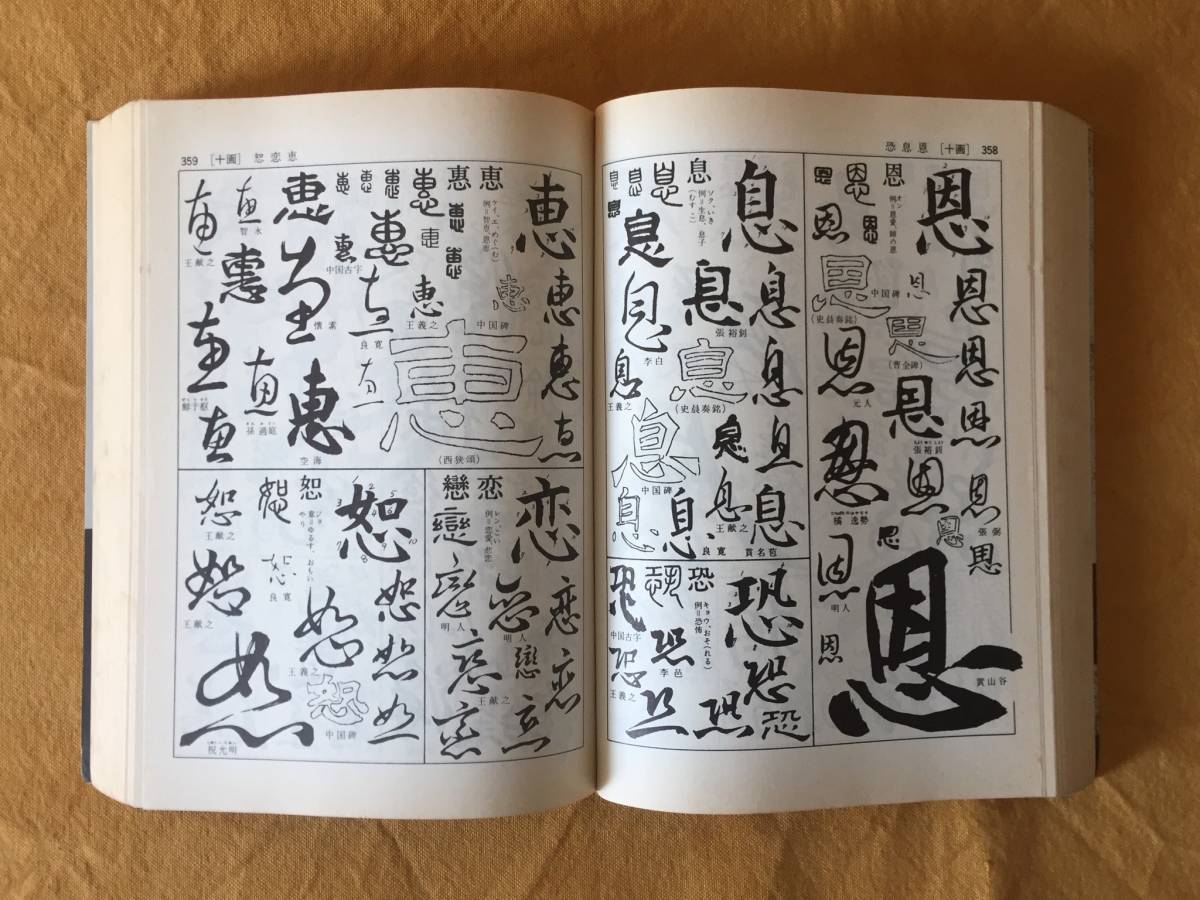 恐息恩 [十画] 358
恩
恩
オン
例＝恩愛、師の恩
中国碑
(史晨奏銘)
(曹全碑)
元人
張裕釗
橘逸勢
張弼
明人
黄山谷
息
息
ソク、いき
例＝生息、息子
(むすこ)
張裕釗
李白
王羲之
(史晨奏銘)
中国碑
王献之
良寛
貫名苞
恐
恐
キョウ、おそ(れる)
例＝恐怖
中国古字
李邕
王羲之
359 [十画] 恕恋恵
恵
恵
惠
ケイ、エ、めぐ(む)
例＝智恵、恩恵
中国碑
王羲之
中国古字
智永
王献之
懐素
良寛
鮮于枢
孫過庭
空海
(西狭頌)
恋
恋
戀
レン、こい
例＝恋愛、悲恋
明人
明人
王献之
恕
恕
ジョ
意＝ゆるす、おもいやり
王献之
良寛
王献之
王羲之
中国碑
祝允明